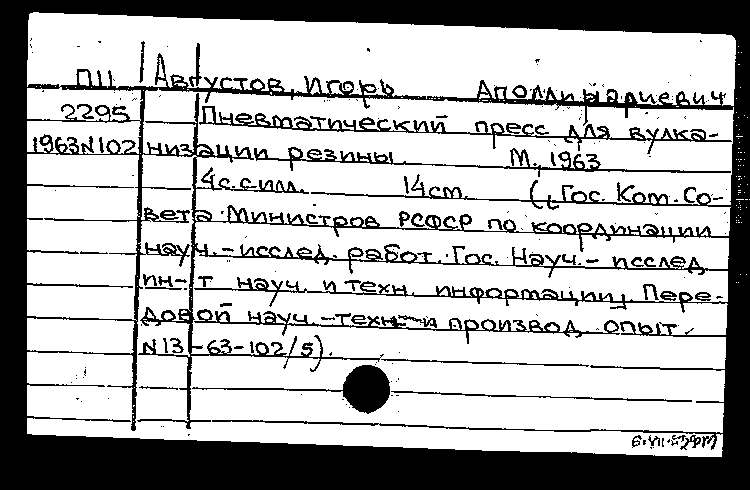 ПII Августов, Игорь Аполлинариевич
2295 Пневматический пресс для вулка-
1963N102 низации резины. М., 1963
4с. с илл. 14см. (Гос. Ком. Со-
вета Министров РСФСР по координации
науч.-исслед. работ. Гос. Науч.-исслед.
ин-т науч. и техн. информации. Пере-
довой науч.-техн. и производ. опыт.
N13-63-102/5).